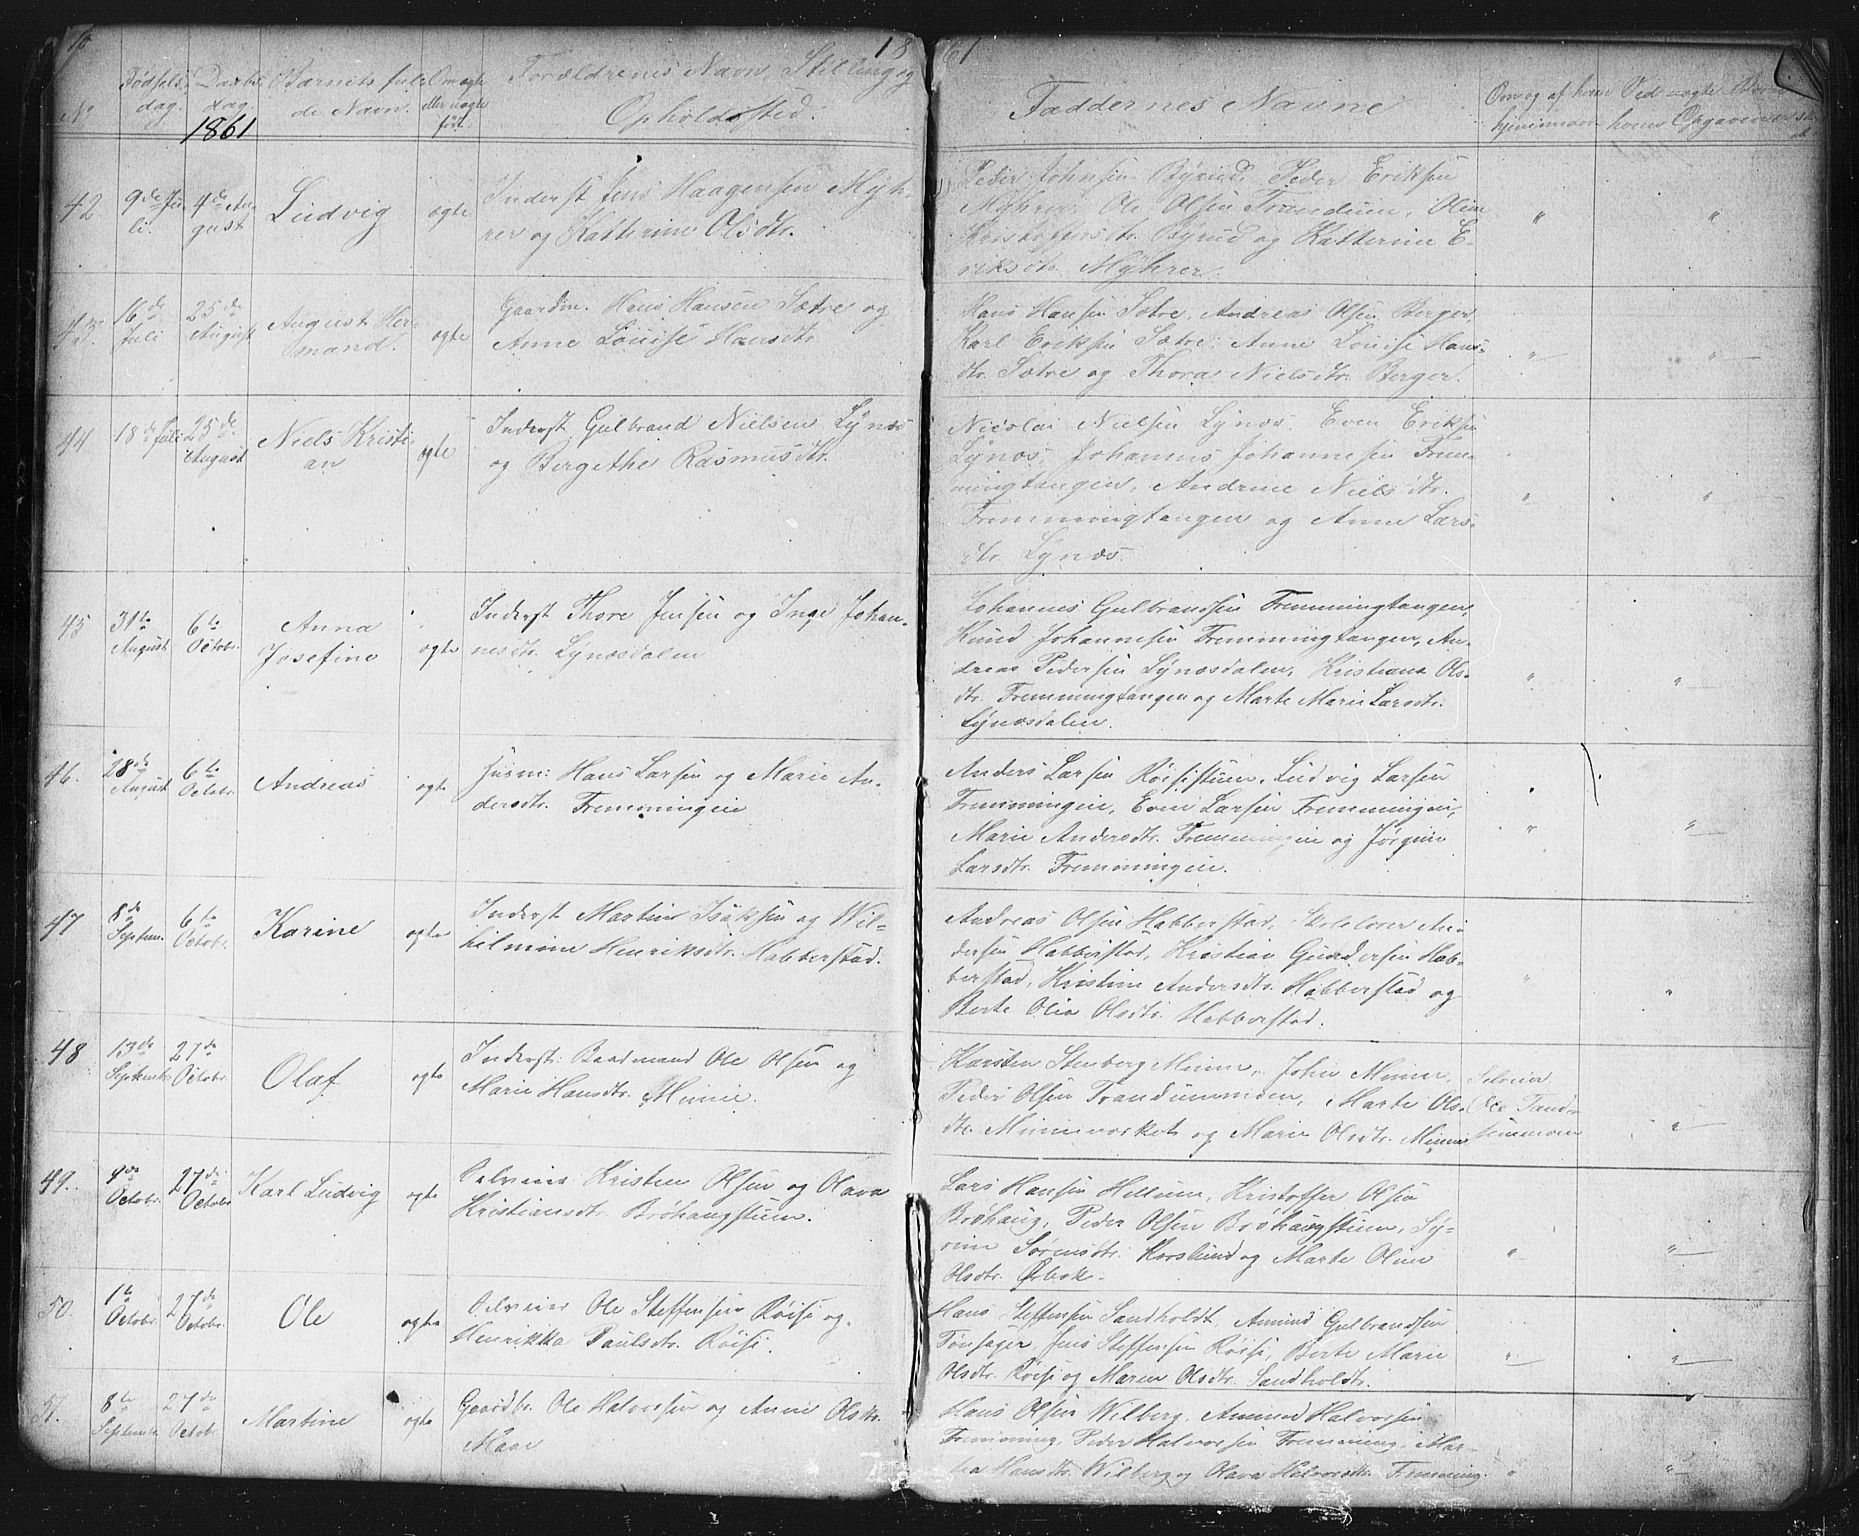 1861
No
Fødsels-
dag.
Daabs-
dag.
1861
Barnets ful-
de Navn.
Om ægte
eller uægte
født.
Forældrenes Navn, Stilling og
Opholdssted.
Faddernes Navne
Om og af hvem
hjemmedøbt
Ved uægte Børn
hvem Opgaveren
42.
9de Ju-
li.
4de Au-
gust
Ludvig
ægte
Inderst Jens Haagensen Myh-
rer og Katterine Olsdtr.
Peder Johnsen Byrud, Peder Eriksen
Myhrer, Ole Olsen Trandum, Oline
Kristoffersdtr. Byrud og Katterine E-
riksdtr. Myhrer.
43.
16de
Juli
25de
August
August Her-
mand.
ægte
Gaardm. Hans Hansen Sætre og
Anne Louise Hansdtr
Hans Hansen Sætre, Andreas Olsen Berger
Karl Eriksen Sætre, Anne Louise Hans-
dtr. Sætre og Thora Nielsdtr. Berger.
44
18de Juli
25de
August
Niels Kristi-
an
ægte
Inderst Gulbrand Nielsen Lynæs
og Bergethe Rasmusdtr.
Nicolai Nielsen Lynæs, Even Eriksen
Lynæs, Johannes Johannesen Frem-
mingtangen, Andrine Nielsdtr.
Fremmingtangen og Anne Lars-
dtr. Lynæs.
45
31te
August
6te
Octobr.
Anna
Josefine
ægte
Inderst Thore Jensen og Inge Johan-
nesdtr. Lynæsdalen
Johannes Gulbrandsen Fremmingtangen,
Knud Johannesen Fremmingtangen, An-
dreas Pedersen Lynæsdalen, Kristiana Ols-
dtr. Fremmingtangen og Marte Marie Larsdtr.
Lynæsdalen.
46.
28de
August
6te
Octobr.
Andreas
ægte
Husm: Hans Larsen og Marie An-
dersdtr. Fremmingeie
Anders Larsen Røisistuen, Ludvig Larsen
Fremmingeie, Even Larsen Fremmingeie,
Marie Andersdtr. Fremmingeie og Jørgine
Larsdtr. Fremmingeie.
47
8de
Septem.
6te
Octobr.
Karine
ægte
Inderst Martin Isaksen og Wil-
helmine Henriksdtr. Habberstad.
Andreas Olsen Habberstad, Skolelærer An-
dersen Habberstad, Kristian Gundersen Hab-
berstad, Kristine Andersdtr. Habberstad og
Berte Olia Olsdtr. Habberstad.
48
13de
Septembr.
27de
Octobr.
Olaf
ægte
Inderst: Baadmand Ole Olsen og
Marie Hansdtr. Minne.
Karsten Stenberg Minne, John Minne,
Peder Olsen Trandumeiden, Marte Ols-
dtr. Minneværket og Marie Olsdtr. Minne
Selveier
Ole
49.
4de
Octobr.
27de
Octobr
Karl Ludvig
ægte
Selveier Kristen Olsen og Olava
Kristiansdtr Brøhaugstuen.
Lars Hansen Hellum, Kristoffer Olsen
Brøhaug, Peder Olsen Brøhaugstuen, Sy-
rine Sørensdtr. Korslund og Marte Oline
Olsdtr. Ørbæk.
50.
1te
Octobr.
27de
Octobr.
Ole
ægte
Selveier Ole Steffensen Røise og
Henrikka Paulsdtr. Røise.
Hans Steffensen Sandholdt, Amund Gulbrandsen
Tønsager, Jens Steffensen Røise, Berte Marie
Olsdtr. Røise og Maren Olsdtr. Sandholdt.
51.
8de
Septembr.
27de
Octobr.
Martine
ægte
Gaardbr. Ole Halvorsen og Anne Olsdtr.
Hans Olsen Wilberg, Amund Halvorsen
Fremming, Peder Halvorsen Fremming, Mar-
Hansdtr. Wilberg og Olava Halvorsdtr. Fremming.